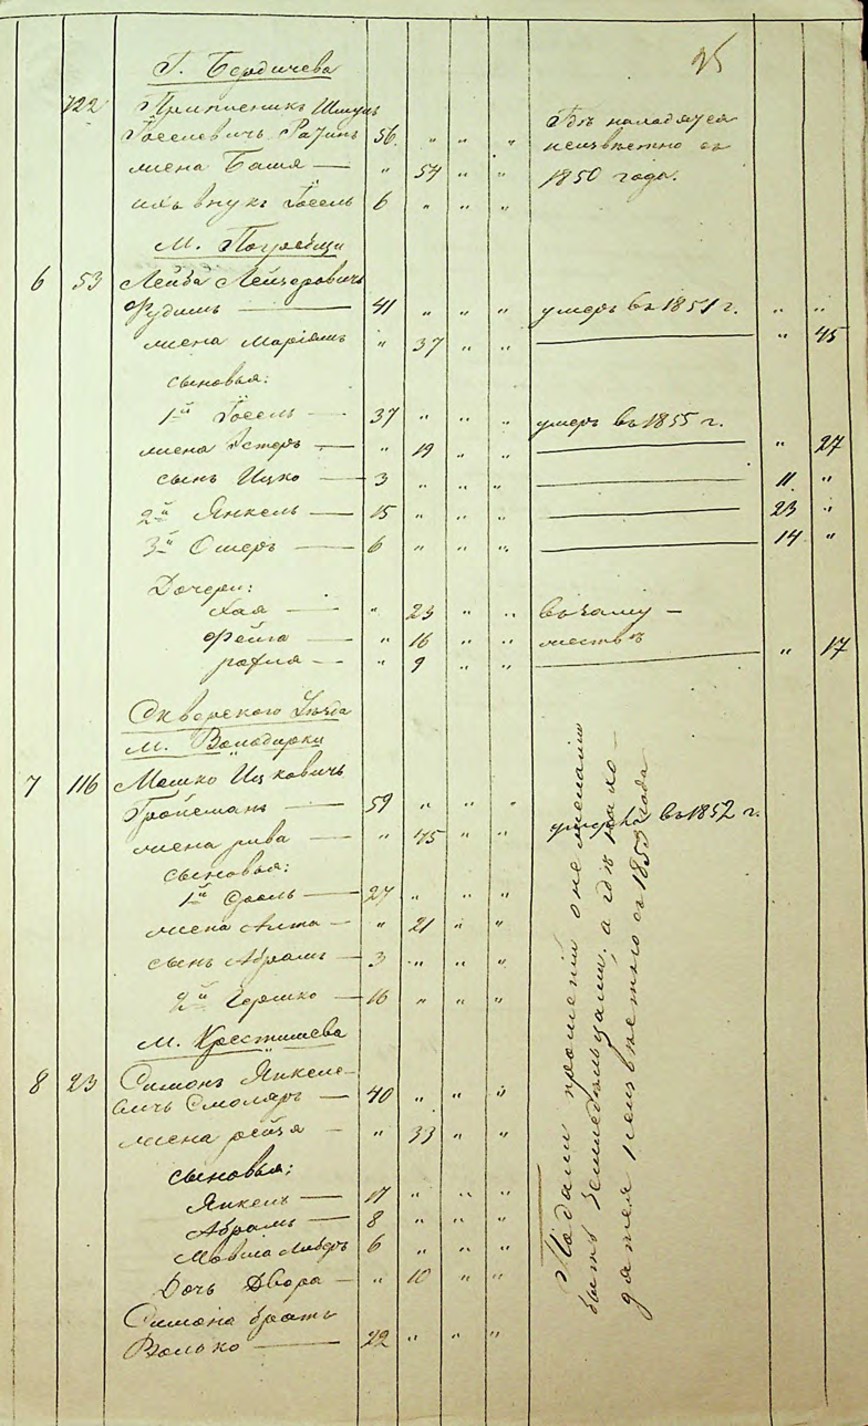 25
Г. Бердичева
722 Приписникъ Шмуль
Іоселевичъ 56. " " "
жена Бася — " 54 " "
ихъ внукъ Іосель 6 " " "
Гдѣ находятся
неизвѣстно съ
1850 года.
М. Погребищи
6 53 Лейба Лейзеровичъ
Фудимъ — 41 " " " умеръ въ 1851 г. " "
жена Маріямъ " 37 " " — " 45
сыновья:
1й Іосель — 37 " " " умеръ въ 1855 г.
жена Эстеръ — " 19 " " — " 27
сынъ Ицко — 3 " " " — 11 "
2й Янкель — 15 " " " — 23 "
3й Ошеръ — 6 " " " — 14 "
Дочери:
Хая — " 23 " " въ заму-
Фейга — " 16 " " жествѣ
— " 9 " " — " 17
Сквирского Уѣзда
М. Володарки
7 116 Мошко Ицковичъ
Гройсманъ — 59 " " "
жена Рива — " 45 " " умерла въ 1852 г.
сыновья:
1й — 27 " " "
жена — " 21 " "
сынъ Абрамъ — 3 " " "
2й Гершко — 16 " " "
М. Хрестишева
8 23 Симонъ Янкеле-
вичъ Смоляръ — 40 " " "
жена Рейзя — " 33 " "
сыновья:
Янкель — 17 " " "
Абрамъ — 8 " " "
Мовша Либеръ 6 " " "
Дочь Двора — " 10 " "
Симона братъ
Волько — 22 " " "
Подали прошеніи о нежеланіи
быть земледѣльцами, а гдѣ нахо-
дятся неизвѣстно съ 1853 года